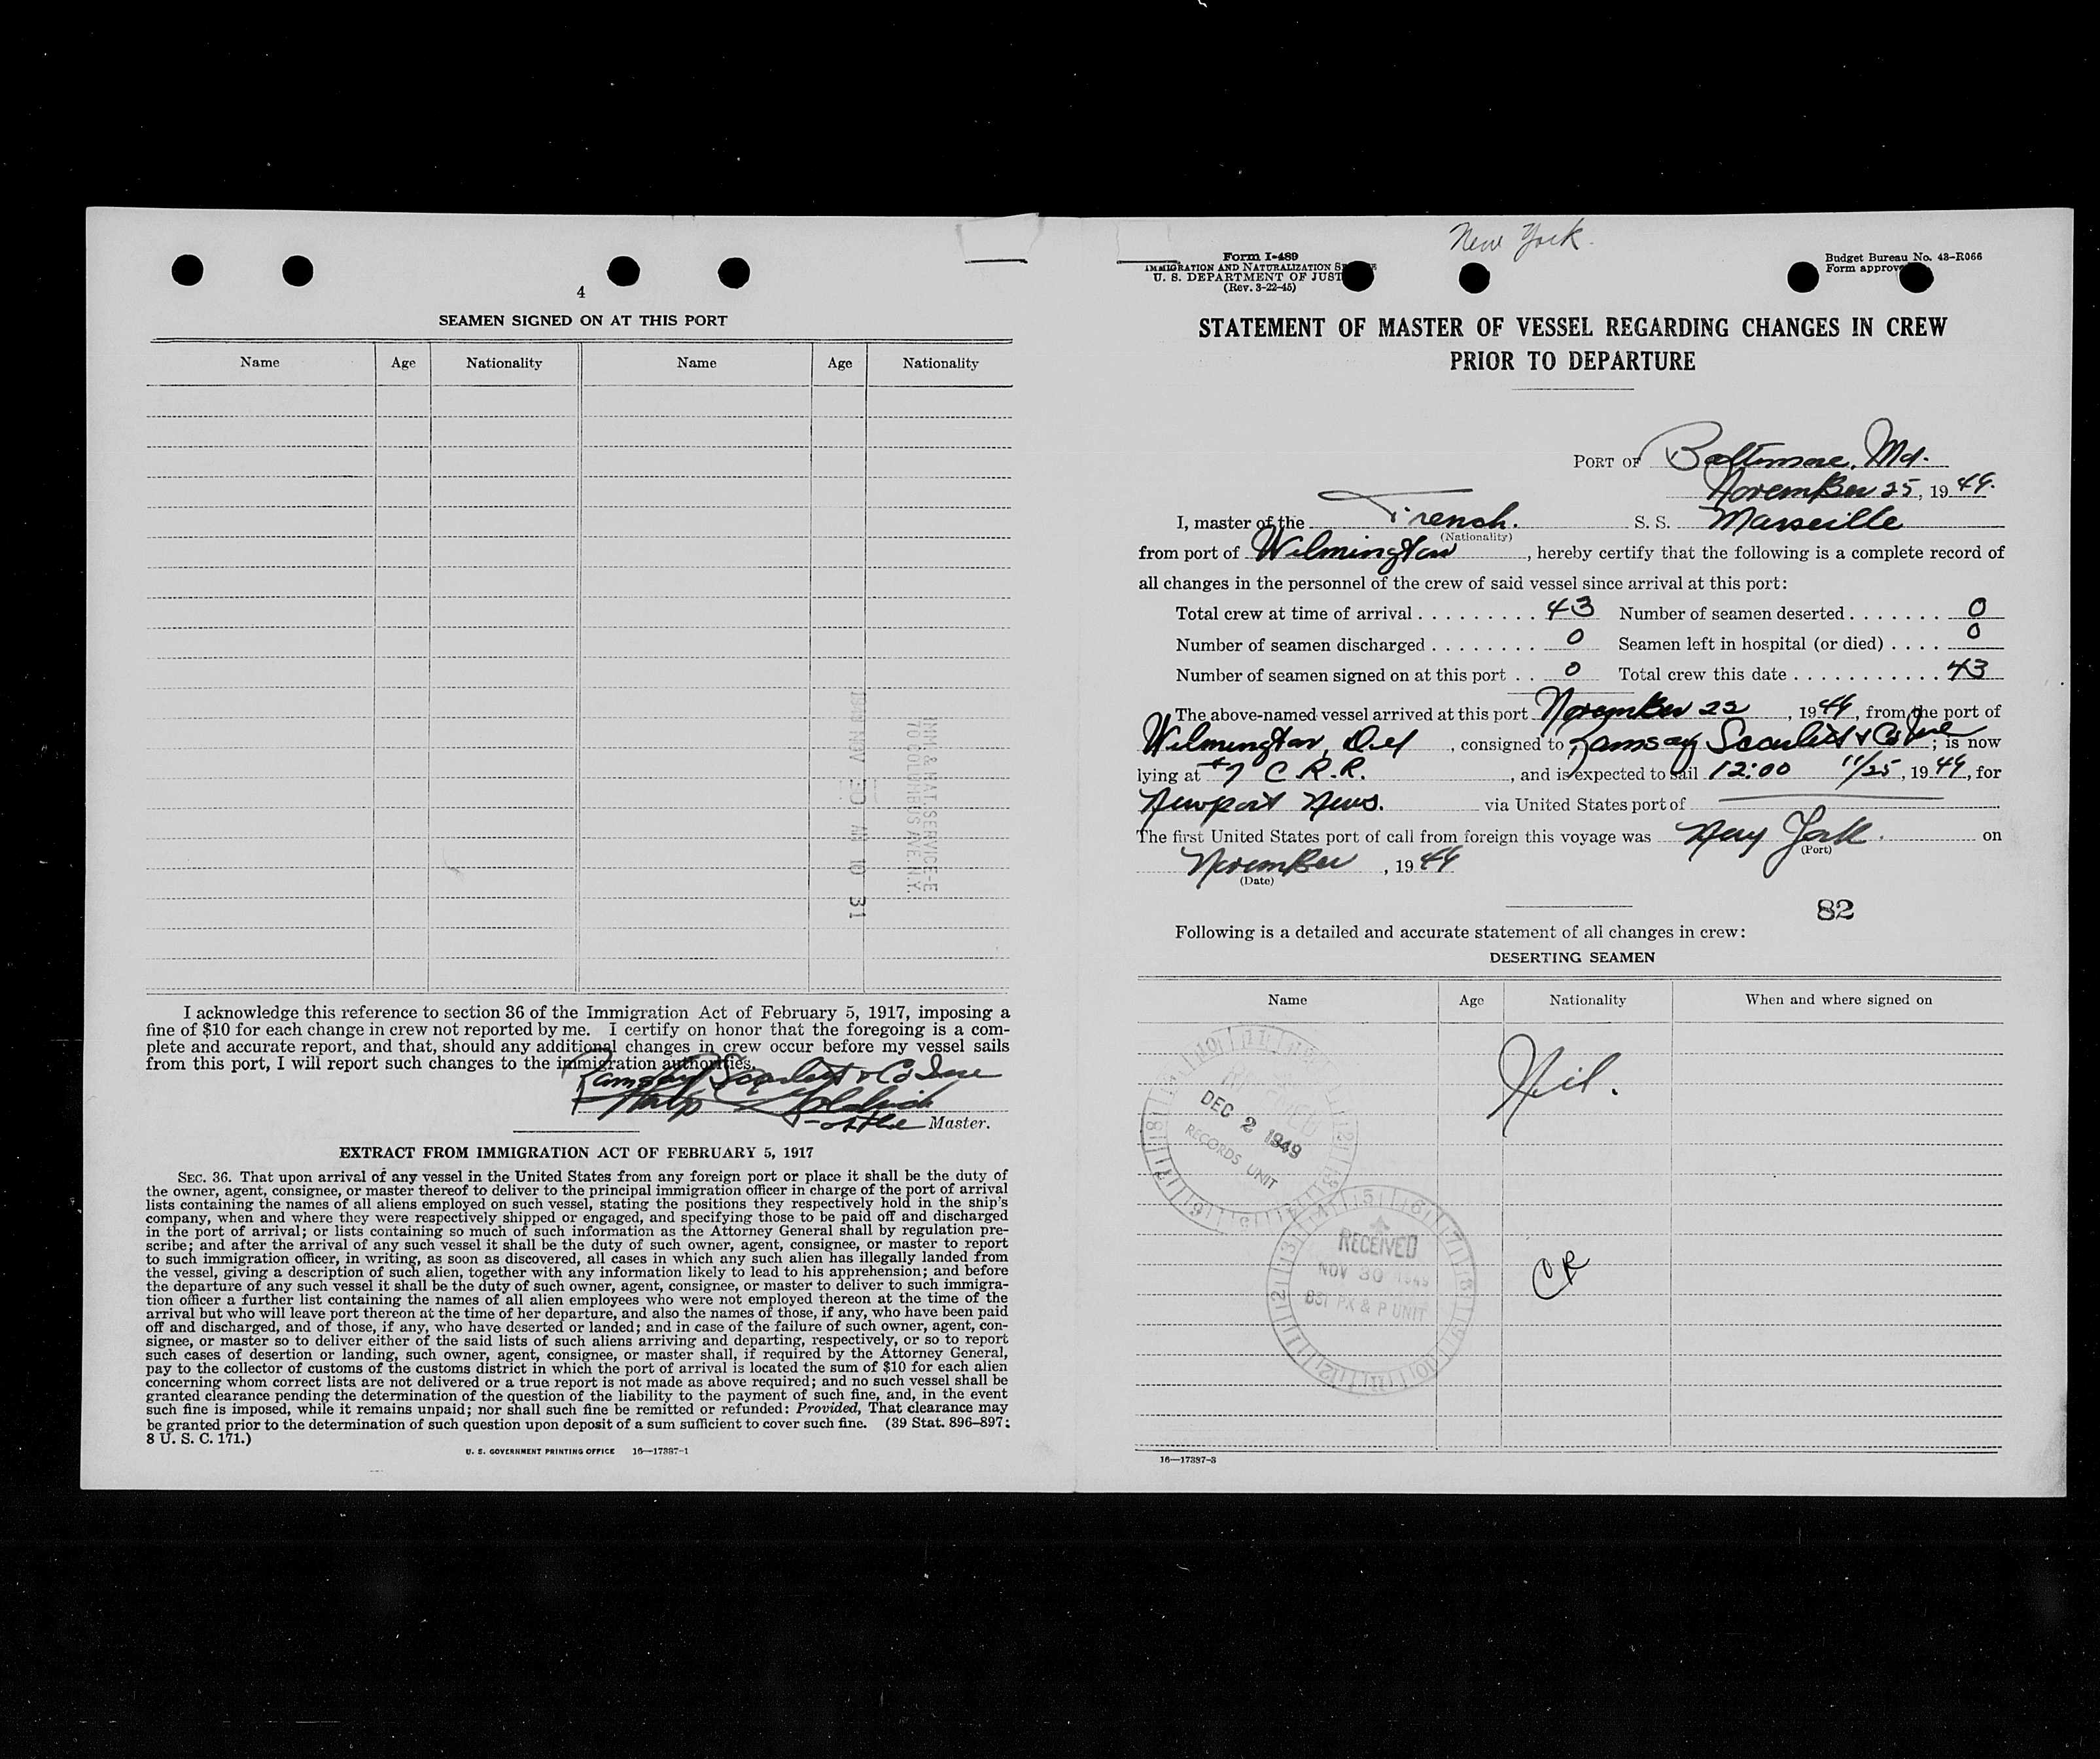 4
SEAMEN SIGNED ON AT THIS PORT
Name Age Nationality Name Age Nationality
IMM. & NAT. SERVICE-E
70 COLUMBUS AVE. N.Y.
1949 NOV 30 AM 10 31
I acknowledge this reference to section 36 of the Immigration Act of February 5, 1917, imposing a
fine of $10 for each change in crew not reported by me. I certify on honor that the foregoing is a com-
plete and accurate report, and that, should any additional changes in crew occur before my vessel sails
from this port, I will report such changes to the immigration authorities.
Ramsay Scarlett & Co Inc
Master.
EXTRACT FROM IMMIGRATION ACT OF FEBRUARY 5, 1917
SEC. 36. That upon arrival of any vessel in the United States from any foreign port or place it shall be the duty of
the owner, agent, consignee, or master thereof to deliver to the principal immigration officer in charge of the port of arrival
lists containing the names of all aliens employed on such vessel, stating the positions they respectively hold in the ship's
company, when and where they were respectively shipped or engaged, and specifying those to be paid off and discharged
in the port of arrival; or lists containing so much of such information as the Attorney General shall by regulation pre-
scribe; and after the arrival of any such vessel it shall be the duty of such owner, agent, consignee, or master to report
to such immigration officer, in writing, as soon as discovered, all cases in which any such alien has illegally landed from
the vessel, giving a description of such alien, together with any information likely to lead to his apprehension; and before
the departure of any such vessel it shall be the duty of such owner, agent, consignee, or master to deliver to such immigra-
tion officer a further list containing the names of all alien employees who were not employed thereon at the time of the
arrival but who will leave port thereon at the time of her departure, and also the names of those, if any, who have been paid
off and discharged, and of those, if any, who have deserted or landed; and in case of the failure of such owner, agent, con-
signee, or master so to deliver either of the said lists of such aliens arriving and departing, respectively, or so to report
such cases of desertion or landing, such owner, agent, consignee, or master shall, if required by the Attorney General,
pay to the collector of customs of the customs district in which the port of arrival is located the sum of $10 for each alien
concerning whom correct lists are not delivered or a true report is not made as above required; and no such vessel shall be
granted clearance pending the determination of the question of the liability to the payment of such fine, and, in the event
such fine is imposed, while it remains unpaid; nor shall such fine be remitted or refunded: Provided, That clearance may
be granted prior to the determination of such question upon deposit of a sum sufficient to cover such fine. (39 Stat. 896–897;
8 U. S. C. 171.)
U. S. GOVERNMENT PRINTING OFFICE 16—17387-1
New York.
Form I-489
IMMIGRATION AND NATURALIZATION
U. S. DEPARTMENT OF JUST
(Rev. 3-22-45)
Budget Bureau No. 43-R066
Form approv
STATEMENT OF MASTER OF VESSEL REGARDING CHANGES IN CREW
PRIOR TO DEPARTURE
PORT OF Baltimore, Md.
November 25, 1949.
I, master of the French. S. S. Marseille
(Nationality)
from port of Wilmington, hereby certify that the following is a complete record of
all changes in the personnel of the crew of said vessel since arrival at this port:
Total crew at time of arrival . . . . . . . . . . 43 Number of seamen deserted . . . . . . . 0
Number of seamen discharged . . . . . . . . 0 Seamen left in hospital (or died) . . . . 0
Number of seamen signed on at this port . . 0 Total crew this date . . . . . . . . . . . 43
The above-named vessel arrived at this port November 22, 1949, from the port of
Wilmington, Del, consigned to Ramsay Scarlett & Co Inc; is now
lying at #7 C.R.R., and is expected to sail 12:00 11/25, 1949, for
Newport News. via United States port of
The first United States port of call from foreign this voyage was New York. on
(Port)
November, 1949
(Date)
82
Following is a detailed and accurate statement of all changes in crew:
DESERTING SEAMEN
Name Age Nationality When and where signed on
Nil.
DEC 2 1949
RECORDS UNIT
RECEIVED
NOV 30 1949
BSI PX & P UNIT
CR
16—17387-3